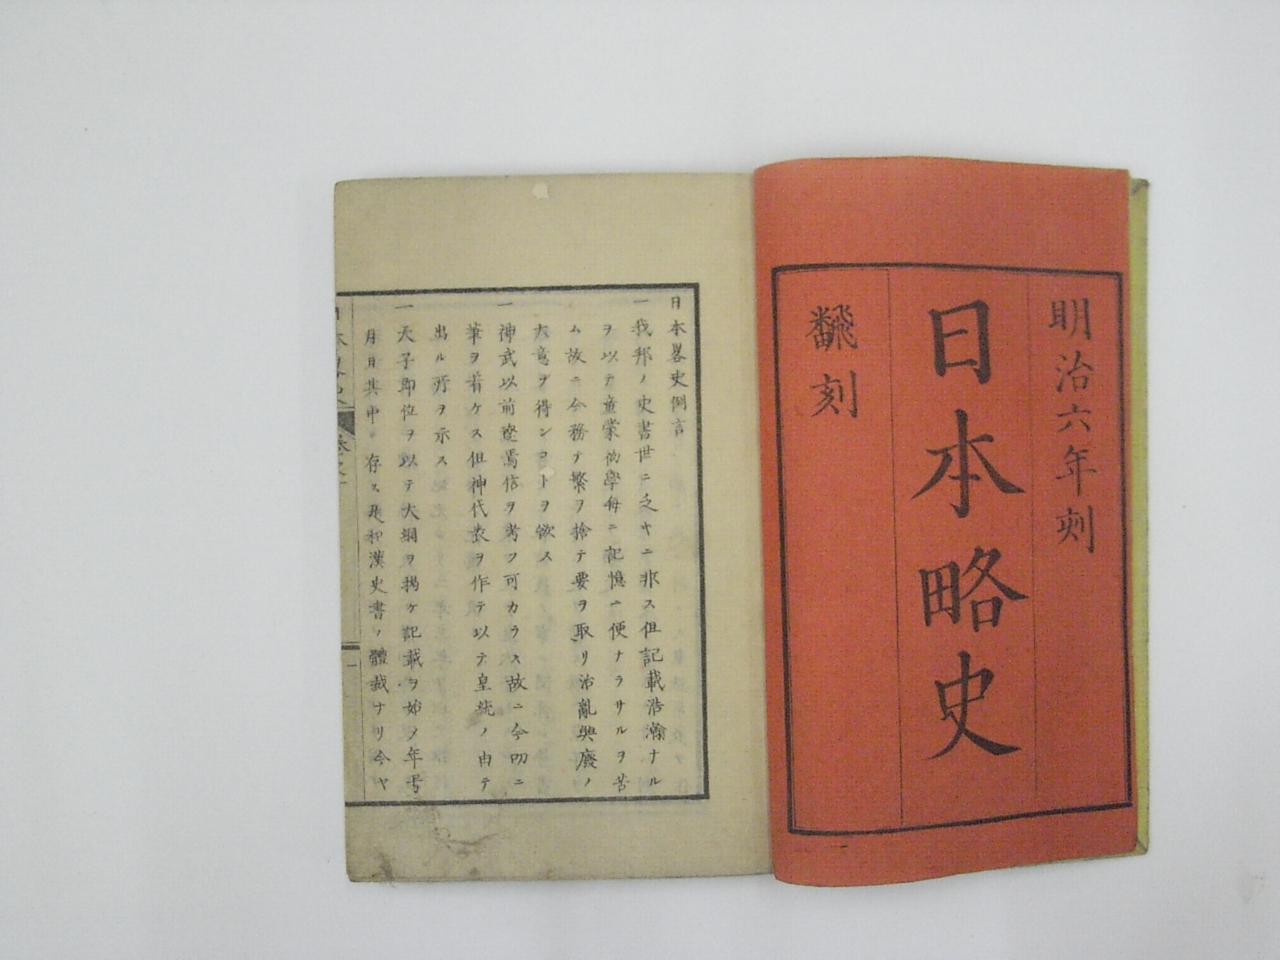 明治六年刻
日本略史
飜刻
日本畧史例言
一我邦ノ史書世ニ乏キニ非ス但記載浩瀚ナル
ヲ以テ童蒙幼學毎ニ記憶ニ便ナラサルヲ苦
ム故ニ今務テ繁ヲ捨テ要ヲ取リ治亂興廢ノ
大意ヲ得ンコトヲ欲ス
一神武以前遼焉信ヲ考フ可カラス故ニ今叨ニ
筆ヲ着ケス但神代表ヲ作テ以テ皇統ノ由テ
出ル所ヲ示ス
一天子即位ヲ以テ大綱ヲ掲ケ記載ヲ始メ年号
月日其中ニ存ス是和漢史書ノ體裁ナリ今ヤ